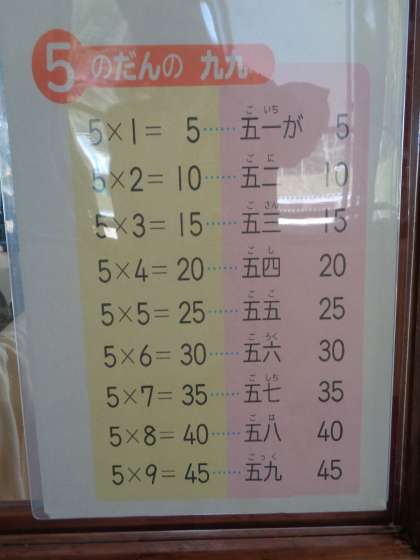 5のだんの 九九
5×1= 5……五一が 5
5×2=10……五二 10
5×3=15……五三 15
5×4=20……五四 20
5×5=25……五五 25
5×6=30……五六 30
5×7=35……五七 35
5×8=40……五八 40
5×9=45……五九 45